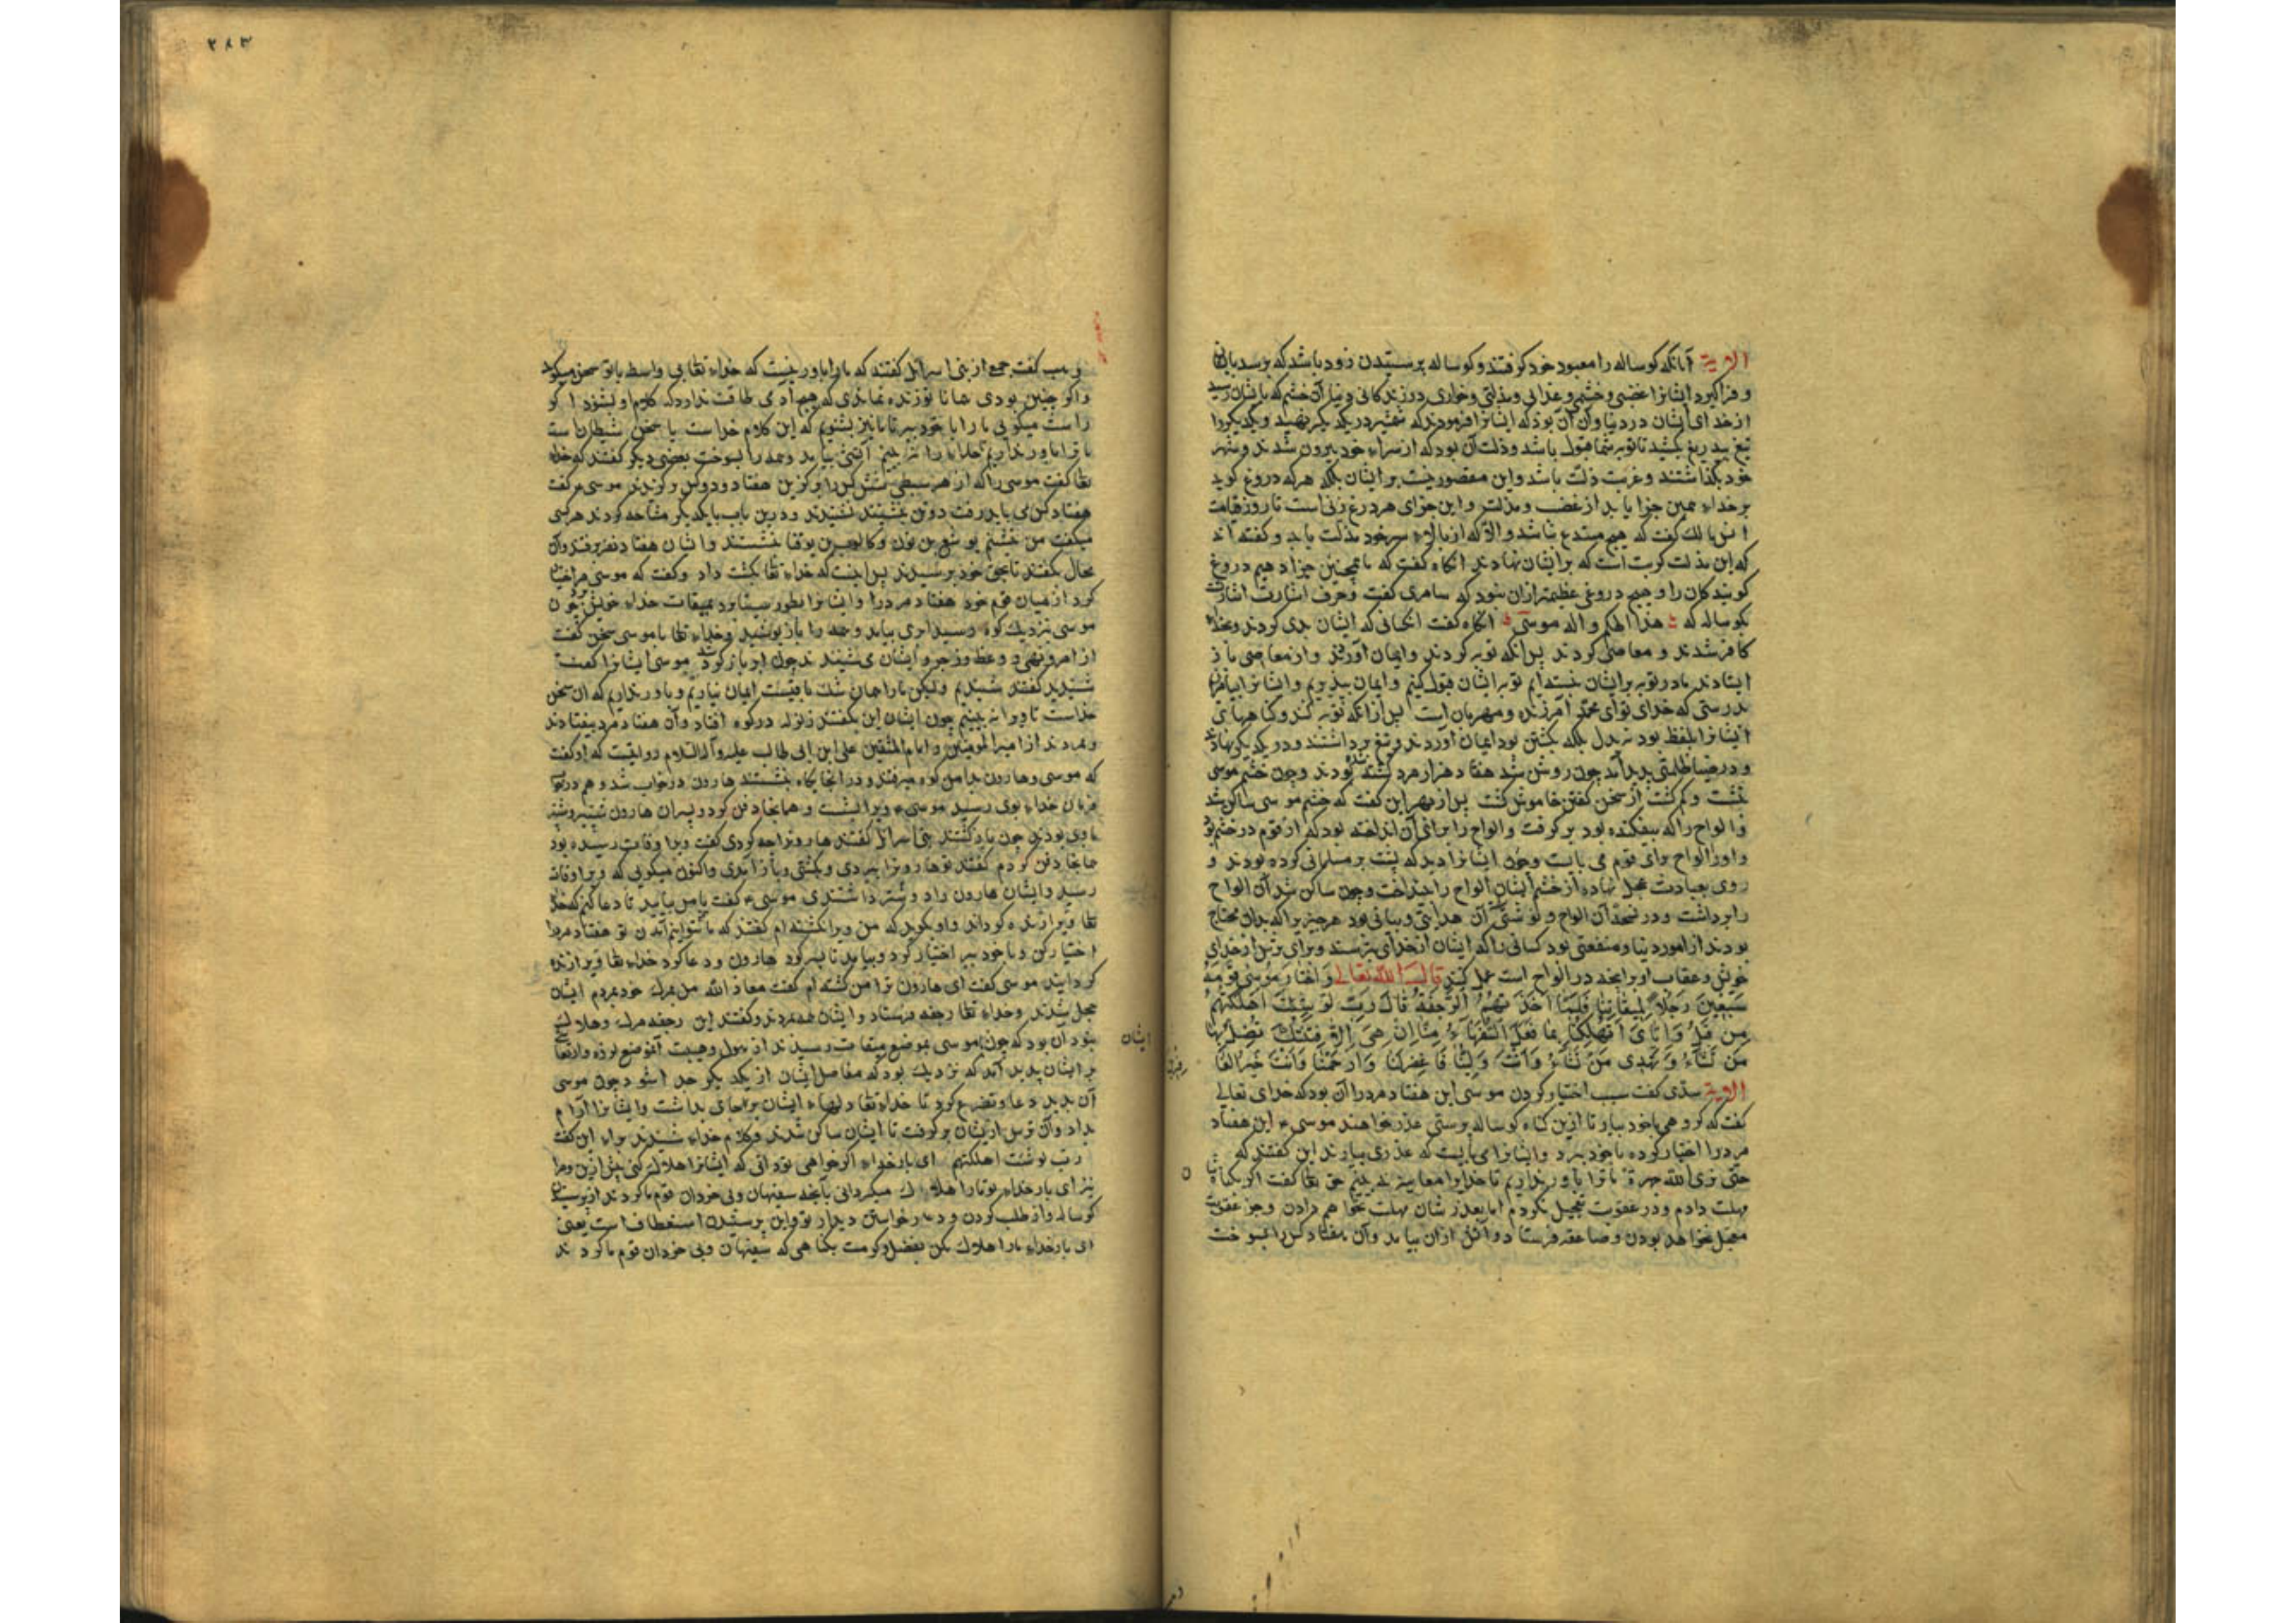 الآیة آنانکه کوساله را معبود خود کرفتند و کوساله پرستیدن زود باشد که برسد بایشان
و فراکیرد ایشانرا غضبی و خشمی و عذابی و مذلتی و خواری در زندکانی دنیا آن خشم که بایشان رسید
از خدای ایشان در دنیا و آن آن بود که ایشانرا فرمودند که شمشیر در یکدیکر نهید و یکدیکر را
تیغ بیدریغ بکشید تا توبه شما قبول باشد و ذلت آن بود که از سراء خود بیرون شدند و شهر
خود بکذاشتند و غربت ذلت باشد و این مقصور نیست بر ایشان بلکه هرکه دروغ کوید
بر خداء همین جزا یابد از غضب و مذلت و این جزای هر دروغ زنی است تا روز قیامت
انس مالک کفت که هیچ مبتدع نباشد والا که از بالاء سر خود مذلت یابد و کفته اند
که این مذلت کربت است که بر ایشان نهادند آنکاه کفت که ما همچنین جزا دهیم دروغ
کویندکان را و هیچ دروغ عظیمتر ازان نبود که سامری کفت و حرف اشارت اشارت
بکوساله که هذا الهکم و اله موسی آنکاه کفت آنکسانی که ایشان بدی کردند و بخدا
کافر شدند و معاصی کردند پس آنکه توبه کردند و ایمان آوردند و از معاصی باز
ایستادند ما در توبه بر ایشان نبسته ایم توبه ایشان قبول کنیم و ایمان بپذیریم و ایشانرا بیامرزیم
بدرستی که خدای تو ای محمد آمرزنده و مهربان است پس از آنکه توبه کنند و کناههای
ایشانرا بلفظ بود نه بدل بلکه بکشتن بود ایمان آوردند و تیغ برداشتند و در یکدیکر نهادند
و در میان ظلمتی پدید آمد چون روشن شد هفتاد هزار مرد کشته بودند و چون خشم موسی
بنشست و کم کشت از سخن کفتن خاموش کشت پس از بهر این کفت که خشم موسی ساکن شد
والواح را که بیفکنده بود بر کرفت و الواح را برای آن انداخته بود که از قوم در خشم بود
و او الواح برای قوم می بایست و چون ایشانرا دید که پشت بر مسلمانی کرده بودند و
روی بعبادت عجل نهاده از خشم ایشان الواح را بینداخت و چون ساکن شد آن الواح
را برداشت و در نسخت آن الواح و نوشتۀ آن هدایتی و بیانی بود هر چیزیرا که بدان محتاج
بودند از امور دنیا و منفعتی بود کسانی را که ایشان از خدای بترسند و برای ترس از خدای
خویش و عقاب او بر آنچه در الواح است عمل کنند قال الله تعالی وَاخْتَارَ مُوسَى قَوْمَهُ
سَبْعِينَ رَجُلًا لِمِيقَاتِنَا فَلَمَّا أَخَذَتْهُمُ الرَّجْفَةُ قَالَ رَبِّ لَوْ شِئْتَ أَهْلَكْتَهُمْ
مِنْ قَبْلُ وَإِيَّايَ أَتُهْلِكُنَا بِمَا فَعَلَ السُّفَهَاءُ مِنَّا إِنْ هِيَ إِلَّا فِتْنَتُكَ تُضِلُّ بِهَا
مَنْ تَشَاءُ وَتَهْدِي مَنْ تَشَاءُ أَنْتَ وَلِيُّنَا فَاغْفِرْ لَنَا وَارْحَمْنَا وَأَنْتَ خَيْرُ الْغَا
الآیة سدی کفت سبب اختیار کردن موسی این هفتاد مرد را آن بود که خدای تعالی
کفت که کروهی با خود بیار تا ازین کناه کوساله پرستی عذر خواهند موسی ء این هفتاد
مرد را اختیار کرده با خود ببرد و ایشانرا می بایست که عذری بیارند این کفتند که
حتی نری الله جهرة ما ترا باور نداریم تا خدایرا معاینه نه بینیم حق تعا کفت اکر یکبار
مهلت دادم و در عقوبت تعجیل نکردم اما بعد زشان مهلت نخواهم دادن و جز عقوبت
معجل نخواهد بودن و صاعقه فرستاد و آتش ازان بیامد و آن هفتاد کس را بسوخت
ایشان
ن
۲۸۳
وهب کفت جمع از بنی اسرائل کفتند که ما را باور نیست که خداء تعا بی واسطه با تو سخن میکوید
و اکر چنین بودی همانا تو زنده نماندی که هیچ آدمی طاقت ندارد که کلام او بشنود اکر
راست میکویی ما را با خود ببر تا ما نیز بشنویم که این کلام خداست یا سخن شیطان است
ما ترا باور نداریم تا خدایرا نه بینیم آتشی بیامد و همه را بسوخت بعضی دیکر کفتند که خداء
تعا کفت موسی را که از هر سبطی شش کس را برکزین هفتاد و دو کس برکزیدند موسی ء کفت
هفتاد کس می باید رفت دو تن بنشینند نشنیدند و درین باب با یکدیکر مشاحه کردند هر کسی
میکفت من بنشینم یوشع بن نون و کالوب بن یوقنا بنشستند و ایشان هفتاد نفر برفتند و آن
محال بکفتند تا بحق خود برسیدند پس اینست که خداء تعا بکشت داد و کفت که موسی مر اختیار
کرد از میان قوم خود هفتاد مرد را و ایشانرا بطور سینا برد بمیقات خداء خویش چون
موسی نزدیک کوه رسید ابری بیامد و همه را باز پوشید و خداء تعا با موسی سخن کفت
از امر و نهی و وعظ و زجر و ایشان می شنیدند چون ابر باز کرد موسی ایشانرا کفت
شنیدید کفتند شنیدیم ولیکن ما را همان شک باقیست ایمان نیاریم و باور نداریم که آن سخن
خداست تا ویرا نه بینیم چون ایشان این بکفتند زلزله در کوه افتاد و آن هفتاد مرد بیفتادند
و بمردند از امیر المومنین و امام المتقین علی ابن ابی طالب علیه و آله السلام روایتست که او کفت
که موسی و هارون بدامن کوه میرفتند و در آنجایکاه بنشستند هارون در خواب شد و هم در خواب
فرمان خداء بوی رسید موسی ء ویرا بشست و همانجا دفن کرد و پسران هارون شبیر و شبر
باوی بودند چون بازکشتند بنی اسرائل کفتند هارونرا چه کردی کفت ویرا وفات رسیده بود
همانجا دفن کردم کفتند تو هارونرا ببردی و بکشتی و باز آمدی و اکنون میکویی که ویرا وفات
رسید و ایشان هارون را دوستر داشتندی موسی ء کفت با من بیایید تا دعا کنم که خداء
تعا ویرا زنده کرداند و او بکوید که من ویرا نکشته ام کفتند که ما نتوانیم آمدن تو هفتاد مرد را
اختیار کن و با خود ببر اختیار کرد و بیامد تا بسر کور هارون و دعا کرد خداء تعا ویرا زنده
کردانید موسی کفت ای هارون ترا من کشته ام کفت معاذ الله من بمرک خود بمردم ایشان
خجل شدند و خداء تعا رجفه فرستاد و ایشان همه بمردند و کفتند این رجفه مرک و هلاک
نبود آن بود که چون موسی بموضع میقات رسیدند از هول و هیبت آنموضع لرزه و ارتعاش
بر ایشان پدید آمد که نزدیک بود که مفاصل ایشان از یکدیکر جدا شود چون موسی
آن بدید دعا و تضرع کرد تا خداء تعا دلهاء ایشان بر جای بداشت و ایشانرا آرام
بداد و آن ترس از یشان برکرفت تا ایشان ساکن شدند و کلام خداء شنیدند براء این کفت
رب لو شئت اهلکتهم ای بار خداء اکر خواهی توانی که ایشانرا هلاک کنی پیش ازین و مرا
نیز ای بار خداء تو ما را هلاک میکردانی بآنچه سفیهان و بی خردان قوم ما کردند از پرستیدن
کوساله و از طلب کردن و در خواستن دیدار تو و این پرسیدن استعطاف است یعنی
ای بار خداء ما را هلاک مکن بفضل و کرمت بکناهی که سفیهان و بی خردان قوم ما کردند